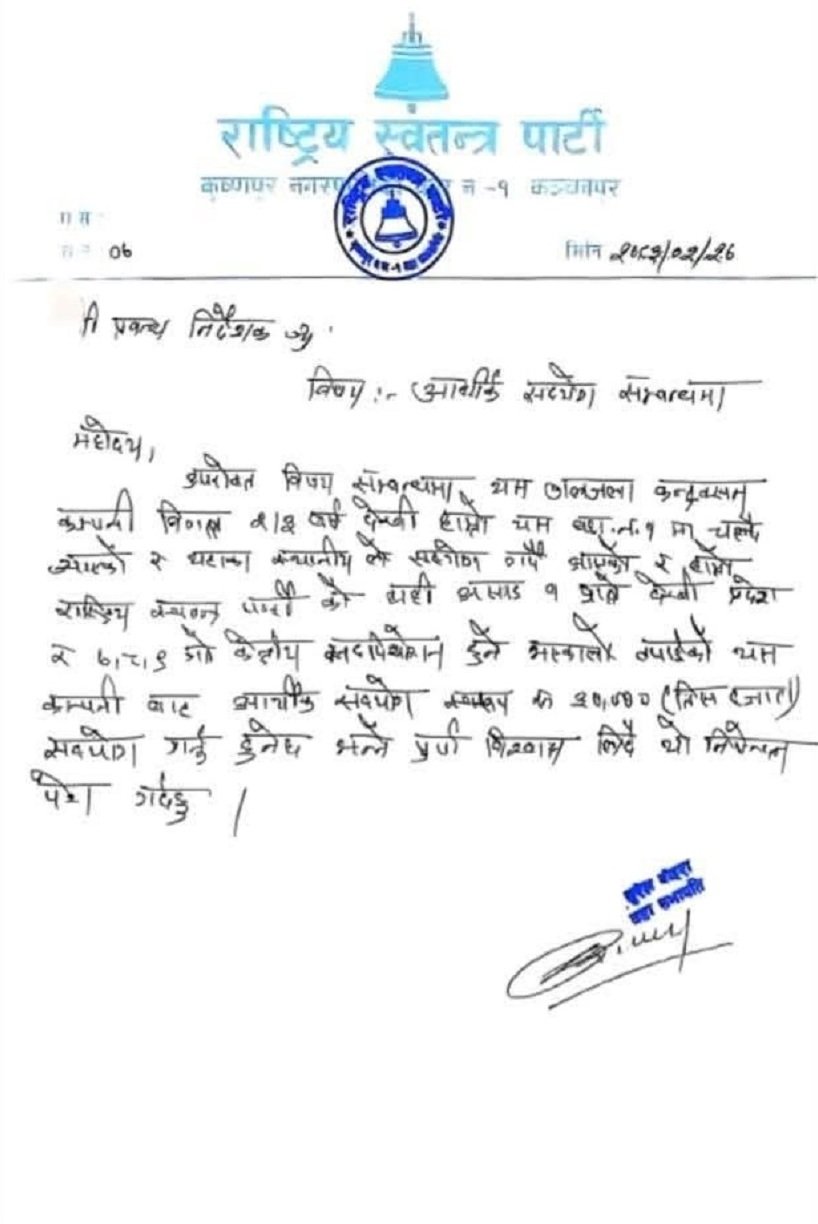 राष्ट्रिय स्वतन्त्र पार्टी
कृष्णपुर न -१ कञ्चनपुर
राष्ट्रिय स्वतन्त्र पार्टी
प स
च न 06
मिति २०८३/०२/२६
प्रबन्ध निर्देशक ज्यु
विषय :- आर्थीक सहयोग सम्बन्धमा
महोदय,
उपरोक्त विषय सम्बन्धमा यस
कम्पनी विगत २/३ वर्ष देखी हाम्रो यस वडा.नं.१ मा चल्दै
आएको र यहाका स्थानीय को सहयोग गर्दै आएको र हाम्रो
राष्ट्रिय स्वतन्त्र पार्टी को यही असाड १ गते देखी प्रदेश
र ७,८,९ गते केन्द्रीय हुने भएकोले तपाईको यस
कम्पनी बाट आर्थीक सहयोग स्वरूप रू ३०,००० (तिस हजार)
सहयोग गर्नु हुनेछ भन्ने पुर्ण विश्वास लिदै यो निवेदन
पेश गर्दछु ।
सुरेश
वडा सभापति